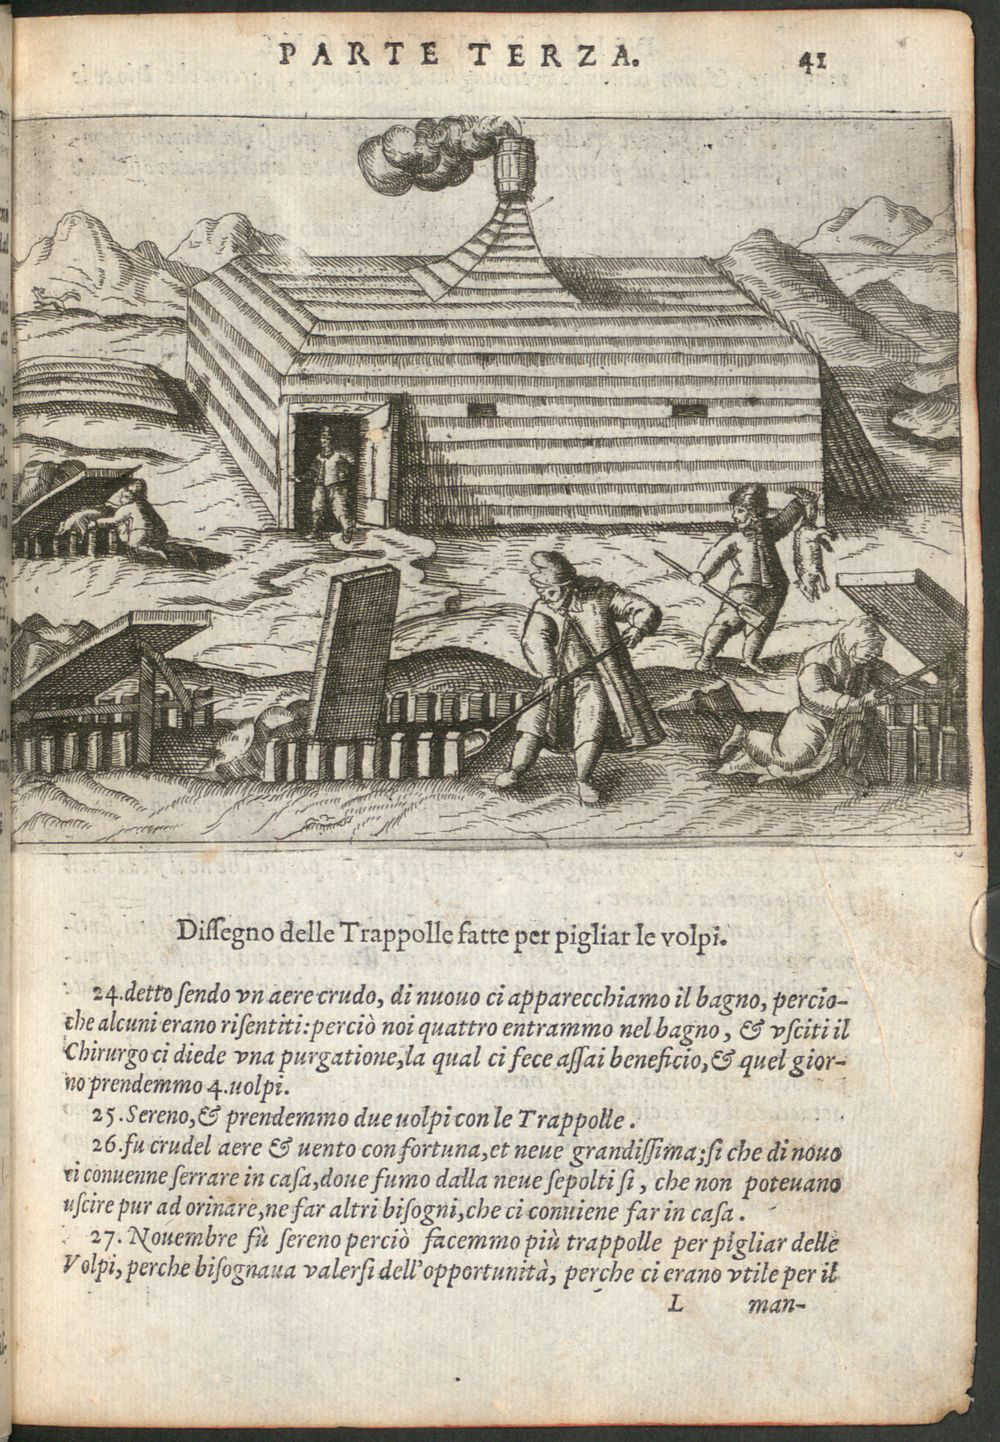 PARTE TERZA. 41
Disſegno delle Trappolle fatte per pigliar le volpi.
24.detto ſendo vn aere crudo, di nuouo ci apparecchiamo il bagno, percio-
che alcuni erano riſentiti: perciò noi quattro entrammo nel bagno, & vſciti il
Chirurgo ci diede vna purgatione, la qual ci fece aſſai beneficio, & quel gior-
no prendemmo 4.uolpi.
25.Sereno, & prendemmo due uolpi con le Trappolle.
26.fu crudel aere & uento con fortuna, et neue grandiſſima; ſi che di nouo
ci conuenne ſerrare in caſa, doue fumo dalla neue ſepolti ſi, che non poteuano
uſcire pur ad orinare, ne far altri biſogni, che ci conuiene far in caſa.
27. Nouembre fù ſereno perciò facemmo più trappolle per pigliar delle
Volpi, perche biſognaua valerſi dell'opportunità, perche ci erano vtile per il
L man-